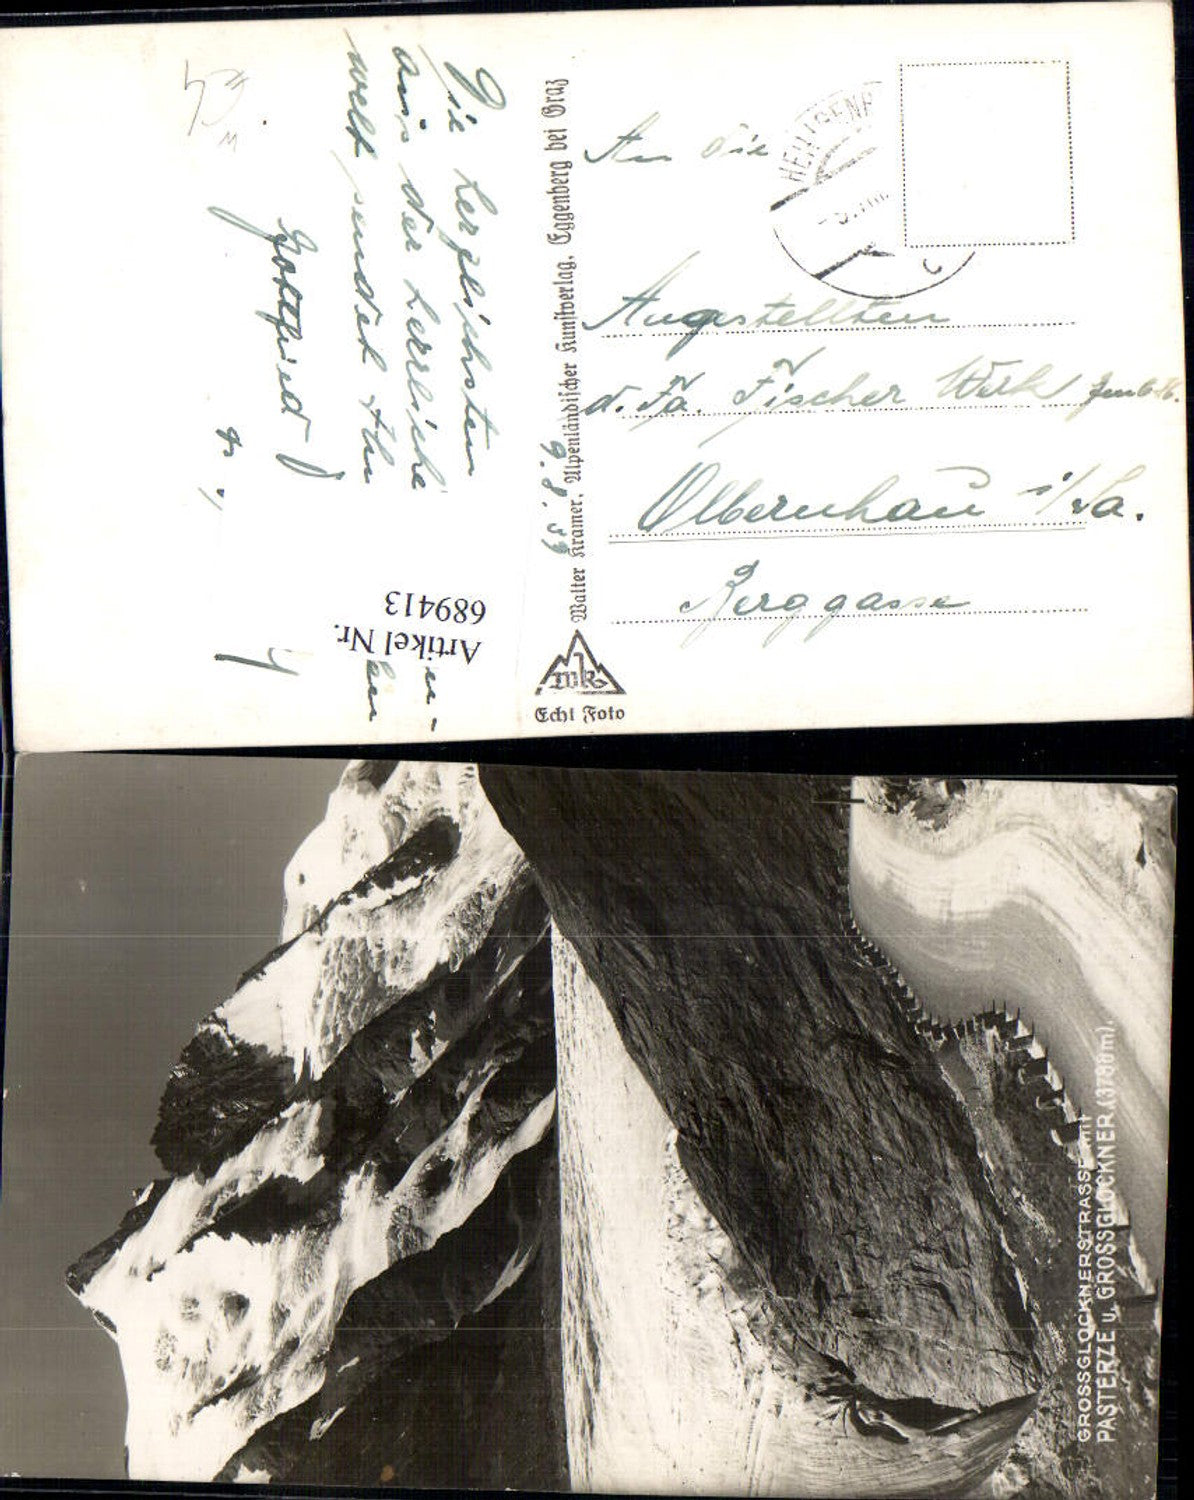 Die herzlichsten
aus der herrliche
welt sendet Ihn
Gottfried
9.8.39
Artikel Nr.
689413
Walter Kramer, Alpenländischer Kunstverlag, Eggenberg bei Graz
WK
Echt Foto
HEILIGENB
An die
Angestellten
d. Fa. Fischer Werk
Olbernhau i/Sa.
Berggasse
GROSSGLOCKNERSTRASSE mit
PASTERZE u. GROSSGLOCKNER (3798m).